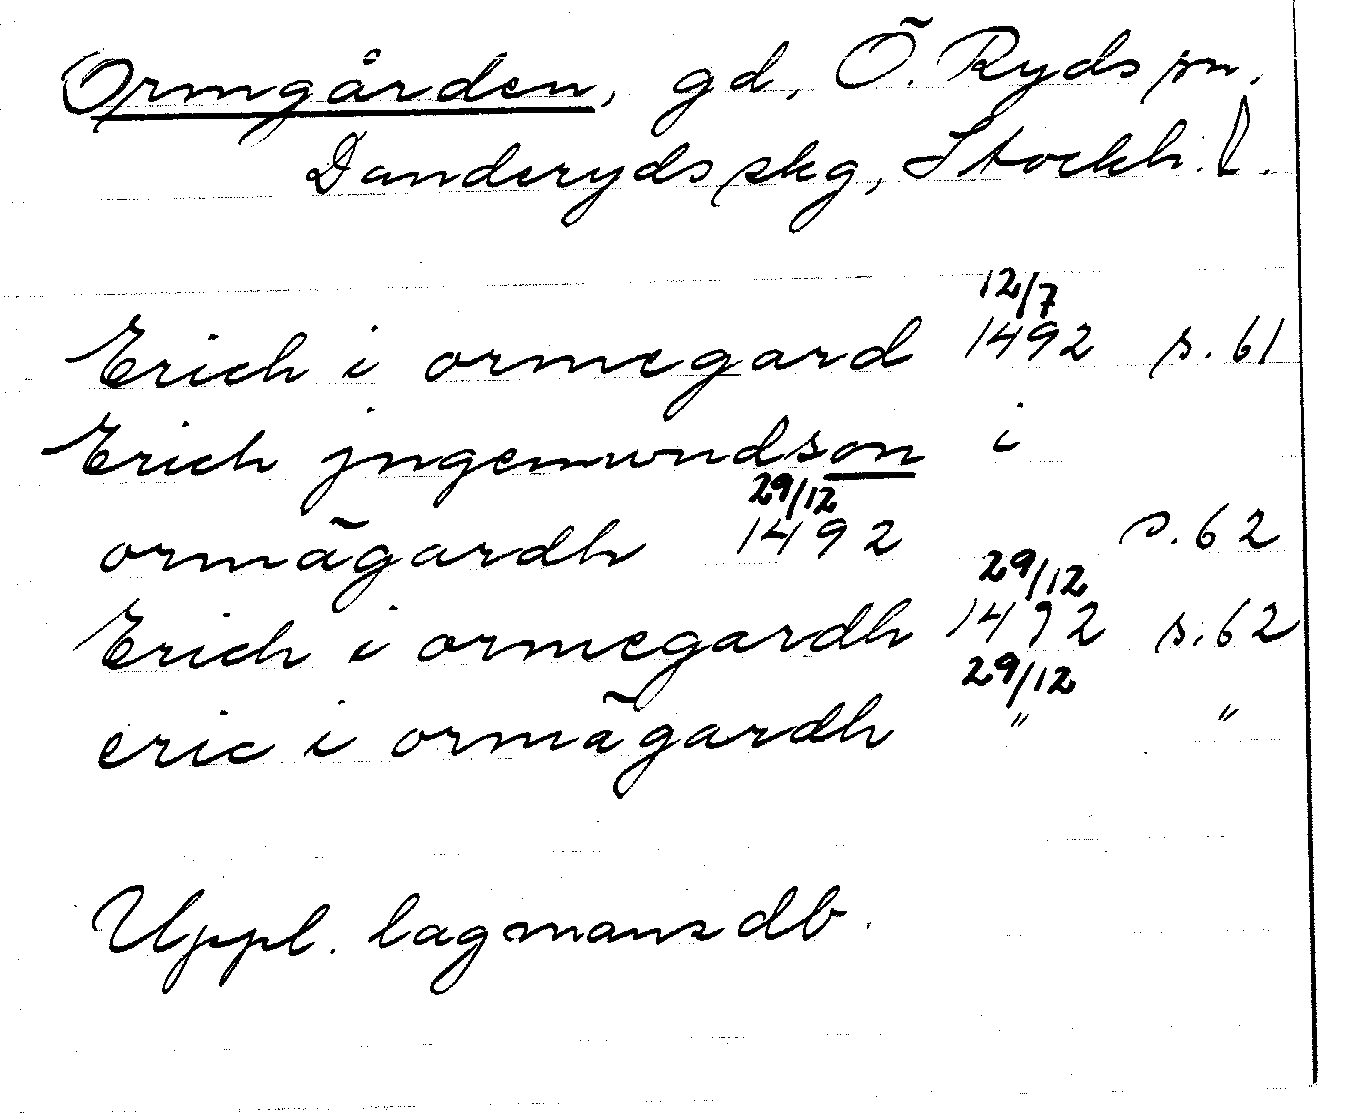 Ormgården, gd, Ö. Ryds sn,
Danderyds skg, Stockh. l.
Erich i ormegard 12/7 1492 s. 61
Erich jngemundson i
ormãgardh 29/12 1492 s. 62
Erich i ormegardh 29/12 1492 s. 62
eric i ormãgardh 29/12 " "
Uppl. lagmansdb.